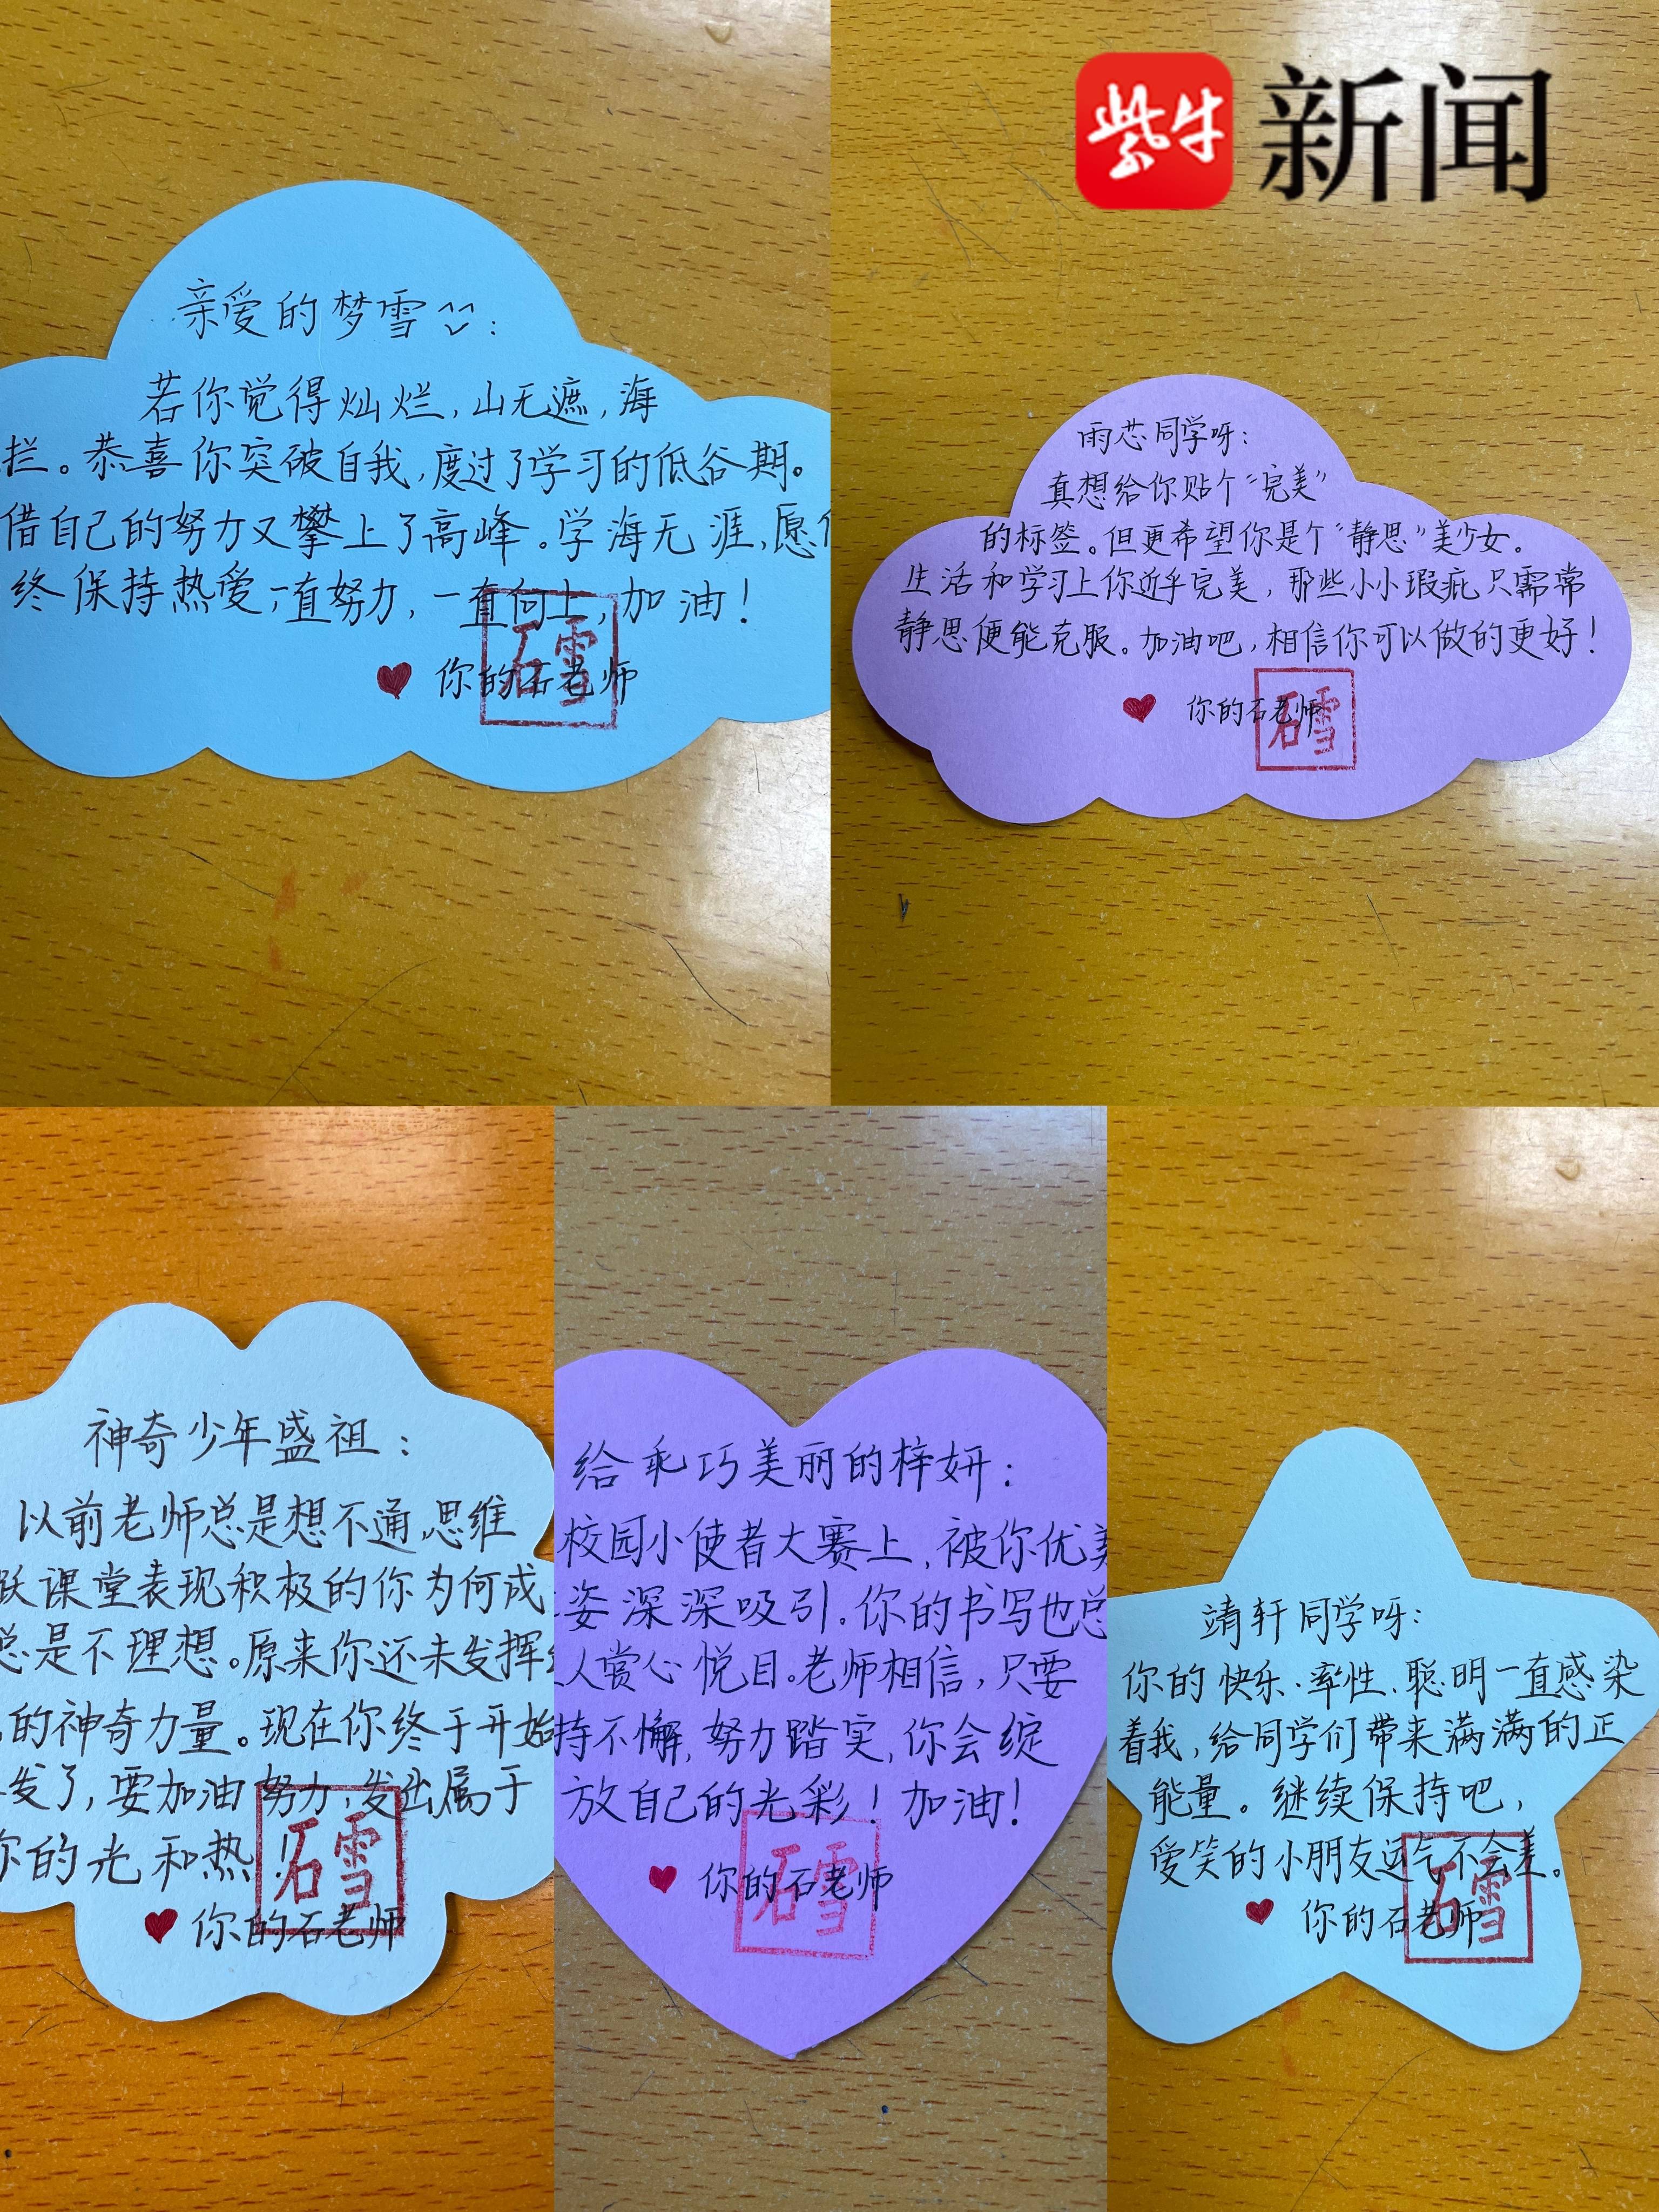 紫牛 新闻
亲爱的梦雪^^:
若你觉得灿烂,山无遮,海
拦。恭喜你突破自我,度过了学习的低谷期。
借自己的努力又攀上了高峰。学海无涯,愿
终保持热爱,一直努力,一直向上,加油!
你的石老师
石雪
雨芯同学呀:
真想给你贴个“完美”
的标签。但更希望你是个“静思”美少女。
生活和学习上你近乎完美,那些小小瑕疵只需常
静思便能克服。加油吧,相信你可以做的更好!
你的石老师
石雪
神奇少年盛祖:
以前老师总是想不通,思维
跃课堂表现积极的你为何成
总是不理想。原来你还未发挥
的神奇力量。现在你终于开始
发了,要加油努力,发出属于
你的光和热!
你的石老师
石雪
给乖巧美丽的梓妍:
校园小使者大赛上,被你优美
姿深深吸引。你的书写也总
人赏心悦目。老师相信,只要
持不懈,努力踏实,你会绽
放自己的光彩!加油!
你的石老师
石雪
靖轩同学呀:
你的快乐、率性、聪明一直感染
着我,给同学们带来满满的正
能量。继续保持吧,
爱笑的小朋友运气不会差。
你的石老师
石雪